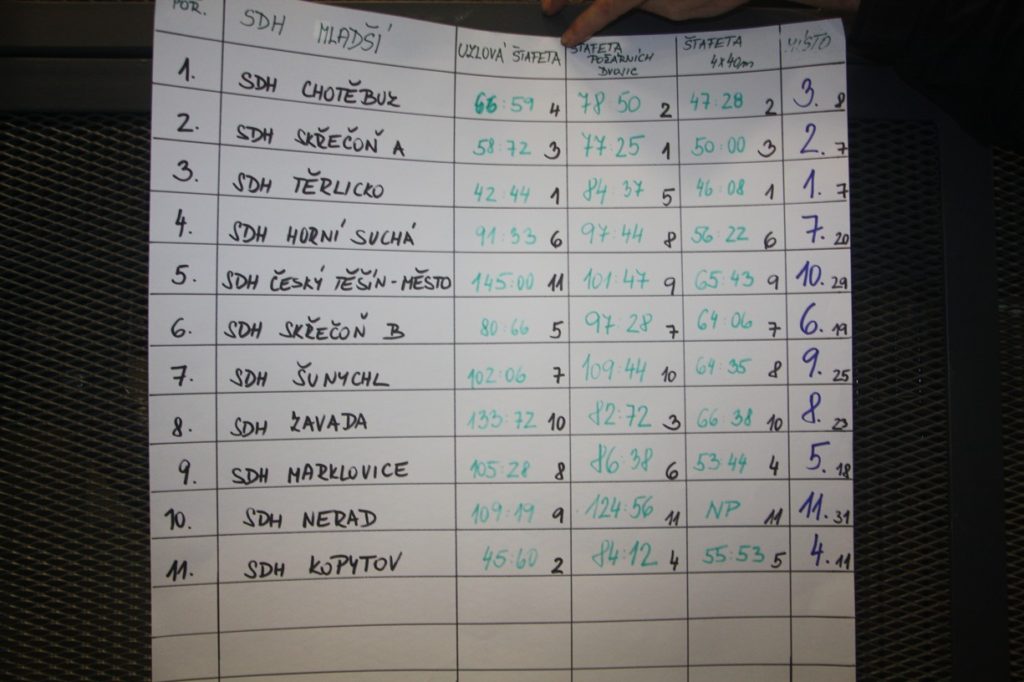 POŘ. SDH MLADŠÍ UZLOVÁ ŠTAFETA ŠTAFETA POŽÁRNÍCH DVOJIC ŠTAFETA 4x40m MÍSTO
1. SDH CHOTĚBUZ 66:59 4 78:50 2 47:28 2 3. 8
2. SDH SKŘEČOŇ A 58:72 3 77:25 1 50:00 3 2. 7
3. SDH TĚRLICKO 42:44 1 84:37 5 46:08 1 1. 7
4. SDH HORNÍ SUCHÁ 91:33 6 97:44 8 56:22 6 7. 20
5. SDH ČESKÝ TĚŠÍN-MĚSTO 145:00 11 101:47 9 65:43 9 10. 29
6. SDH SKŘEČOŇ B 80:66 5 97:28 7 64:06 7 6. 19
7. SDH ŠUNYCHL 102:06 7 109:44 10 64:35 8 9. 25
8. SDH ZÁVADA 133:72 10 82:72 3 66:38 10 8. 23
9. SDH MARKLOVICE 105:28 8 86:38 6 53:44 4 5. 18
10. SDH NERAD 109:19 9 124:56 11 NP 11 11. 31
11. SDH KOPYTOV 45:60 2 84:12 4 55:53 5 4. 11